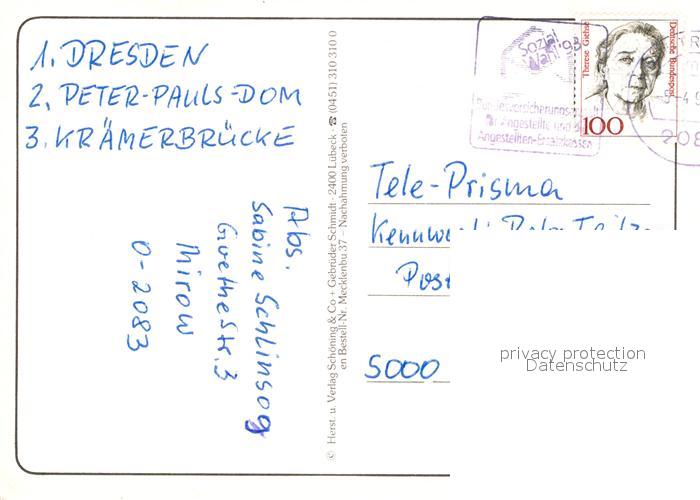 1. DRESDEN
2. PETER-PAULS-DOM
3. KRÄMERBRÜCKE
Abs.
Sabine Schlinsog
Goethestr. 3
Mirow
O-2083
© Herst. u. Verlag Schöning & Co + Gebrüder Schmidt · 2400 Lübeck · ☎ (0451) 310 310 0
en Bestell-Nr. Mecklenbu 37 – Nachahmung verboten
Sozial
Wahl '93
Bundesversicherungsanstalt
für Angestellte und
Angestellten-Ersatzkassen
Therese Giehse
Deutsche Bundespost
100
208
Tele-Prisma
Kennwort:
Post
5000
privacy protection
Datenschutz